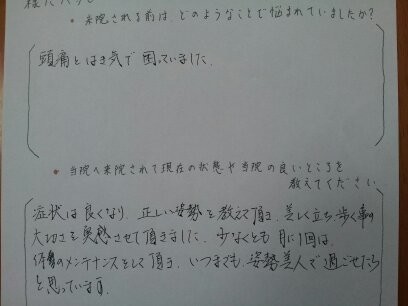 ・来院される前は どのようなことで悩まれていましたか?
頭痛とはき気で困っていました.
・当院へ来院されて現在の状態や当院の良いところを
教えてください
症状は良くなり、正しい姿勢を教えて頂き、美しく立ち歩く事の
大切さを実感させて頂きました. 少なくとも 月に1回は、
のメンテナンスをして頂き、いつまでも、姿勢美人で過ごせたら
と思っています。